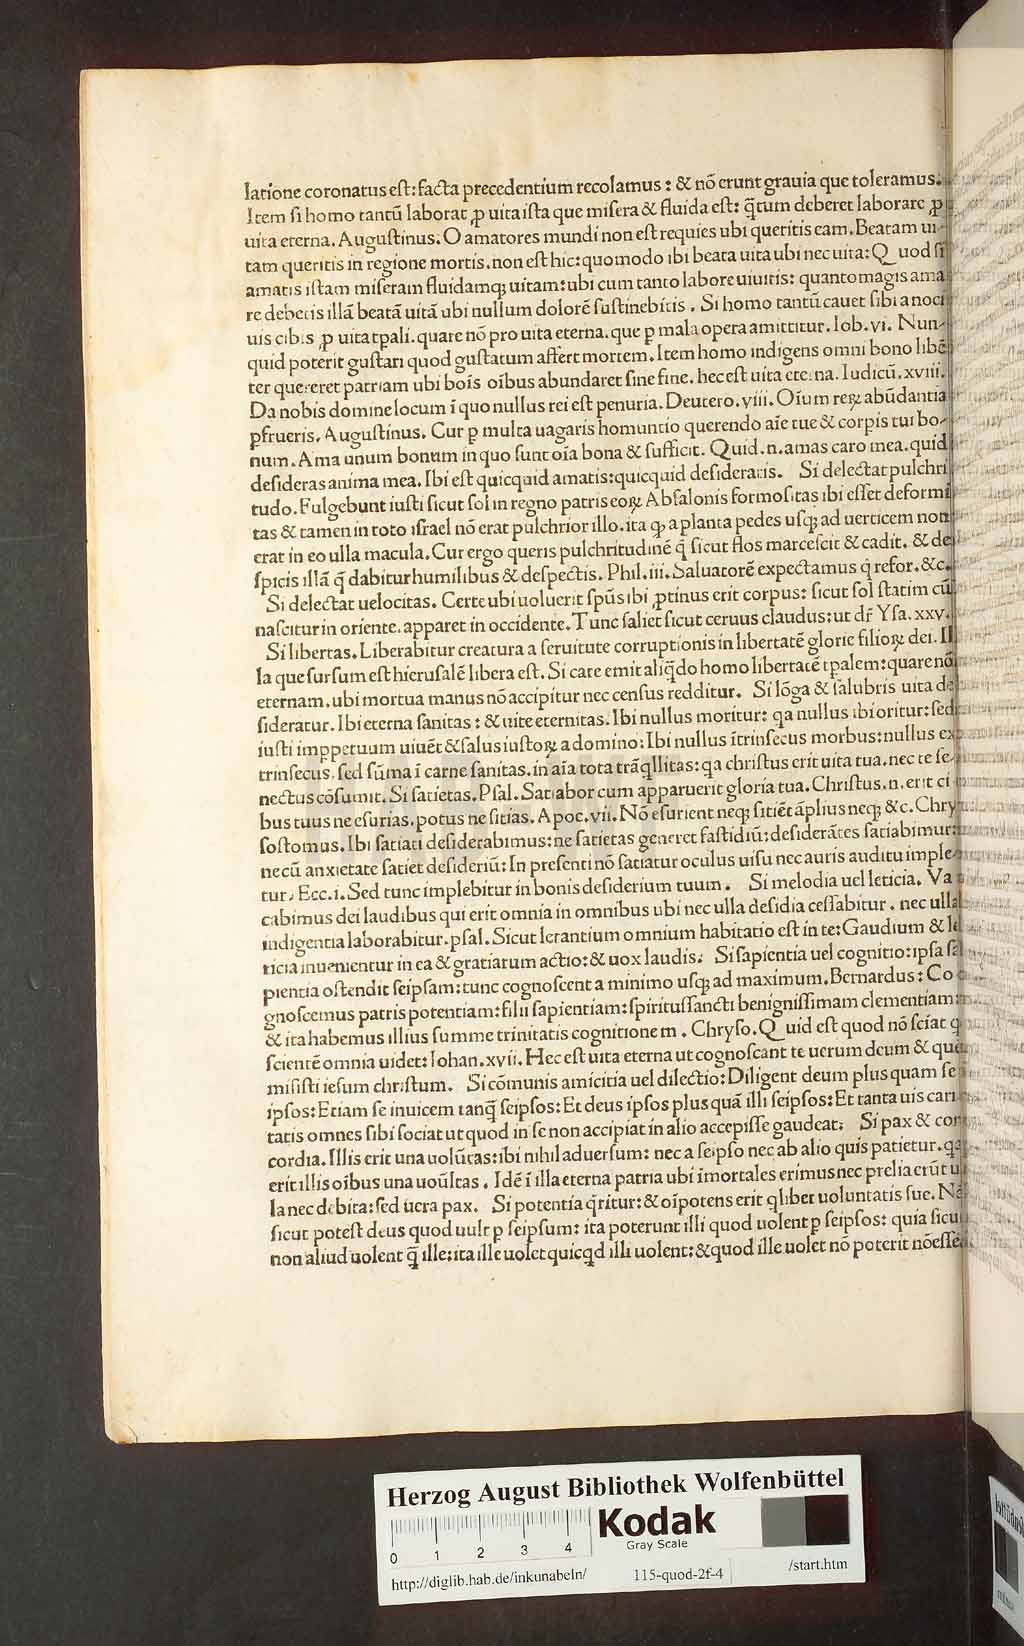 latione coronatus est: facta precedentium recolamus: & nõ erunt grauia que toleramus.
Item si homo tantũ laborat ꝓ uita ista que misera & fluida est: q̃tum deberet laborare ꝓ
uita eterna. Augustinus. O amatores mundi non est requies ubi queritis eam. Beatam ui-
tam queritis in regione mortis. non est hic: quomodo ibi beata uita ubi nec uita: Quod si
amatis istam miseram fluidamqꝫ uitam: ubi cum tanto labore uiuitis: quanto magis ama
re debetis illã beatã uitã ubi nullum dolorẽ sustinebitis. Si homo tantũ cauet sibi a noci
uis cibis ꝓ uita tpali. quare nõ pro uita eterna. que ꝑ mala opera amittitur. Iob. vi. Nun-
quid poterit gustari quod gustatum affert mortem. Item homo indigens omni bono libẽ
ter quereret patriam ubi boĩs oĩbus abundaret sine fine. hec est uita eterna. Iudicũ. xviii.
Da nobis domine locum ĩ quo nullus rei est penuria. Deutero. viii. Oĩum reꝝ abũdantia
ꝑfrueris. Augustinus. Cur ꝑ multa uagaris homuntio querendo aĩe tue & corpis tui bo-
num. Ama unum bonum in quo sunt oĩa bona & sufficit. Quid .n. amas caro mea. quid
desideras anima mea. Ibi est quicquid amatis: quicquid desideratis. Si delectat pulchri
tudo. Fulgebunt iusti sicut sol in regno patris eoꝝ Absalonis formositas ibi esset deformi
tas & tamen in toto israel nõ erat pulchrior illo. ita ꝙ a planta pedes usqꝫ ad uerticem non
erat in eo ulla macula. Cur ergo queris pulchritudinẽ q̃ sicut flos marcescit & cadit. & de
spicis illã q̃ dabitur humilibus & despectis. Phil. iii. Saluatorẽ expectamus q̃ refor. &c.
Si delectat uelocitas. Certe ubi uoluerit spũs ibi ꝓtinus erit corpus: sicut sol statim cũ
nascitur in oriente. apparet in occidente. Tunc saliet sicut ceruus claudus: ut dr̃ Ysa. xxv.
Si libertas. Liberabitur creatura a seruitute corruptionis in libertatẽ glorie filioꝝ dei. Il
la que sursum est hierusalẽ libera est. Si care emit aliq̃do homo libertatẽ tpalem: quare nõ
eternam. ubi mortua manus nõ accipitur nec census redditur. Si lõga & salubris uita de
sideratur. Ibi eterna sanitas: & uite eternitas. Ibi nullus moritur: qa nullus ibi oritur: sed
iusti imppetuum uiuẽt & salus iustoꝝ a domino: Ibi nullus ĩtrinsecus morbus: nullus ex
trinsecus. sed sũma ĩ carne sanitas. in aĩa tota trãqllitas: qa christus erit uita tua. nec te se-
nectus cõsumit. Si satietas. Psal. Satiabor cum apparuerit gloria tua. Christus .n. erit ci
bus tuus ne esurias. potus ne sitias. Apoc. vii. Nõ esurient neqꝫ sitiẽt ãplius neqꝫ &c. Chry
sostomus. Ibi satiati desiderabimus: ne satietas generet fastidiũ: desiderãtes satiabimur:
necũ anxietate satiet desideriũ: In presenti nõ satiatur oculus uisu nec auris auditu imple-
tur. Ecc. i. Sed tunc implebitur in bonis desiderium tuum. Si melodia uel leticia. Va
cabimus dei laudibus qui erit omnia in omnibus ubi nec ulla desidia cessabitur. nec ulla
indigentia laborabitur. psal. Sicut letantium omnium habitatio est in te: Gaudium & le
ticia inuenientur in ea & gratiarum actio: & uox laudis. Si sapientia uel cognitio: ipsa sa
pientia ostendit seipsam: tunc cognoscent a minimo usqꝫ ad maximum. Bernardus: Co
gnoscemus patris potentiam: filii sapientiam: spiritussancti benignissimam clementiam:
& ita habemus illius summe trinitatis cognitionem. Chryso. Quid est quod nõ sciat q
scientẽ omnia uidet: Iohan. xvii. Hec est uita eterna ut cognoscant te uerum deum & que
misisti iesum christum. Si cõmunis amicitia uel dilectio: Diligent deum plus quam se
ipsos: Etiam se inuicem tanq̃ seipsos: Et deus ipsos plus quã illi seipsos: Et tanta uis cari
tatis omnes sibi sociat ut quod in se non accipiat in alio accepisse gaudeat. Si pax & con
cordia. Illis erit una uolũtas: ibi nihil aduersum: nec a seipso nec ab alio quis patietur. qa
erit illis oĩbus una uoũltas. Idẽ ĩ illa eterna patria ubi ĩmortales erimus nec prelia erũt ul
la nec debita: sed uera pax. Si potentia q̃ritur: & oĩpotens erit qliber uoluntatis sue. Nã
sicut potest deus quod uult ꝑ seipsum: ita poterunt illi quod uolent ꝑ seipsos: quia sicut
non aliud uolent q̃ ille: ita ille uolet quicqd illi uolent: & quod ille uolet nõ poterit nõ esse.
Herzog August Bibliothek Wolfenbüttel
Kodak
Gray Scale
0 1 2 3 4
http://diglib.hab.de/inkunabeln/ 115-quod-2f-4 /start.htm